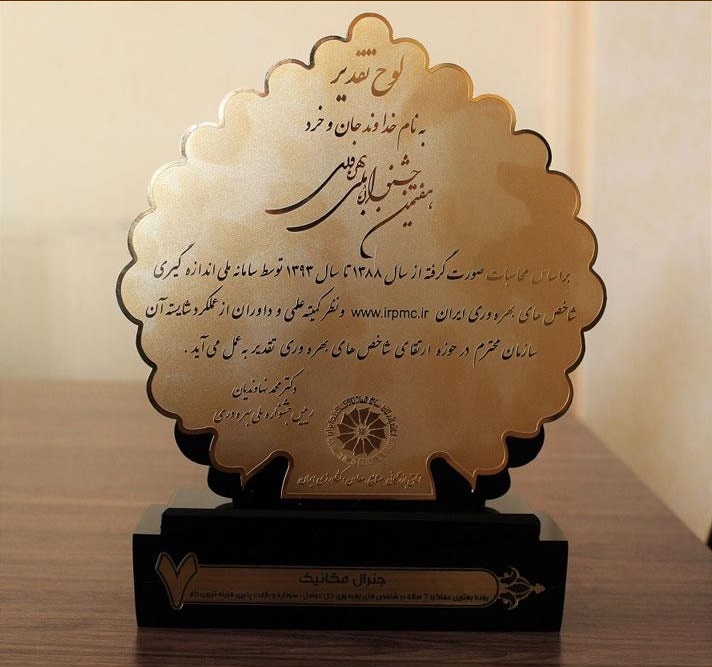 لوح تقدیر
به نام خداوند جان و خرد
هفتمین جشنواره ملی بهره‌وری
براساس محاسبات صورت گرفته از سال ۱۳۸۸ تا سال ۱۳۹۳ توسط سامانه ملی اندازه گیری
شاخص های بهره وری ایران www.irpmc.ir و نظر کمیته علمی و داوران از عملکرد شایسته آن
سازمان محترم در حوزه ارتقای شاخص های بهره وری تقدیر به عمل می آید .
دکتر محمد نهاوندیان
رییس جشنواره ملی بهره وری
اتاق بازرگانی، صنایع، معادن و کشاورزی ایران
۷
جنرال مکانیک
برنده بهترین عملکرد ۶ ساله در شاخص های بهره وری کل عوامل ، سرمایه و رقابت پذیری هزینه نیروی کار